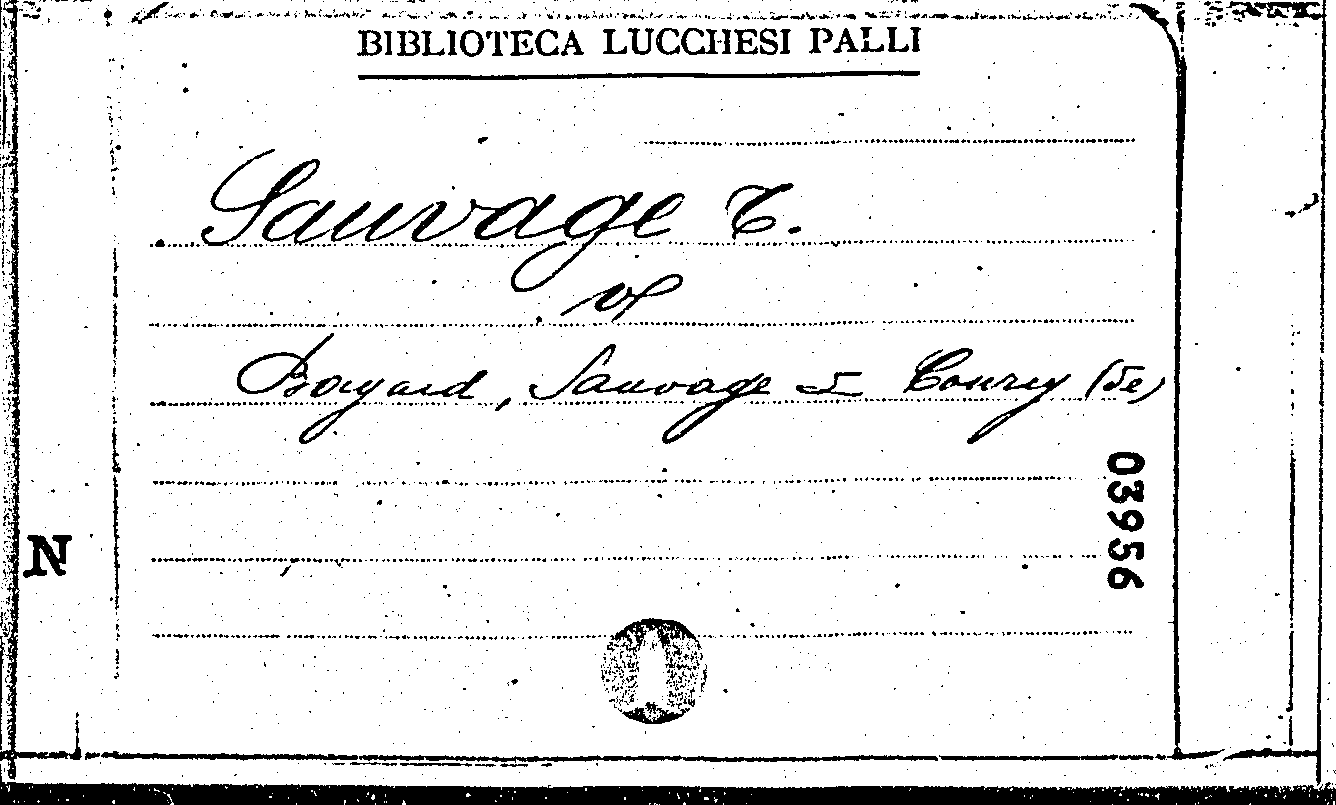 BIBLIOTECA LUCCHESI PALLI
Sauvage T.
v.
Bayard, Sauvage e Courcy (de)
03956
N